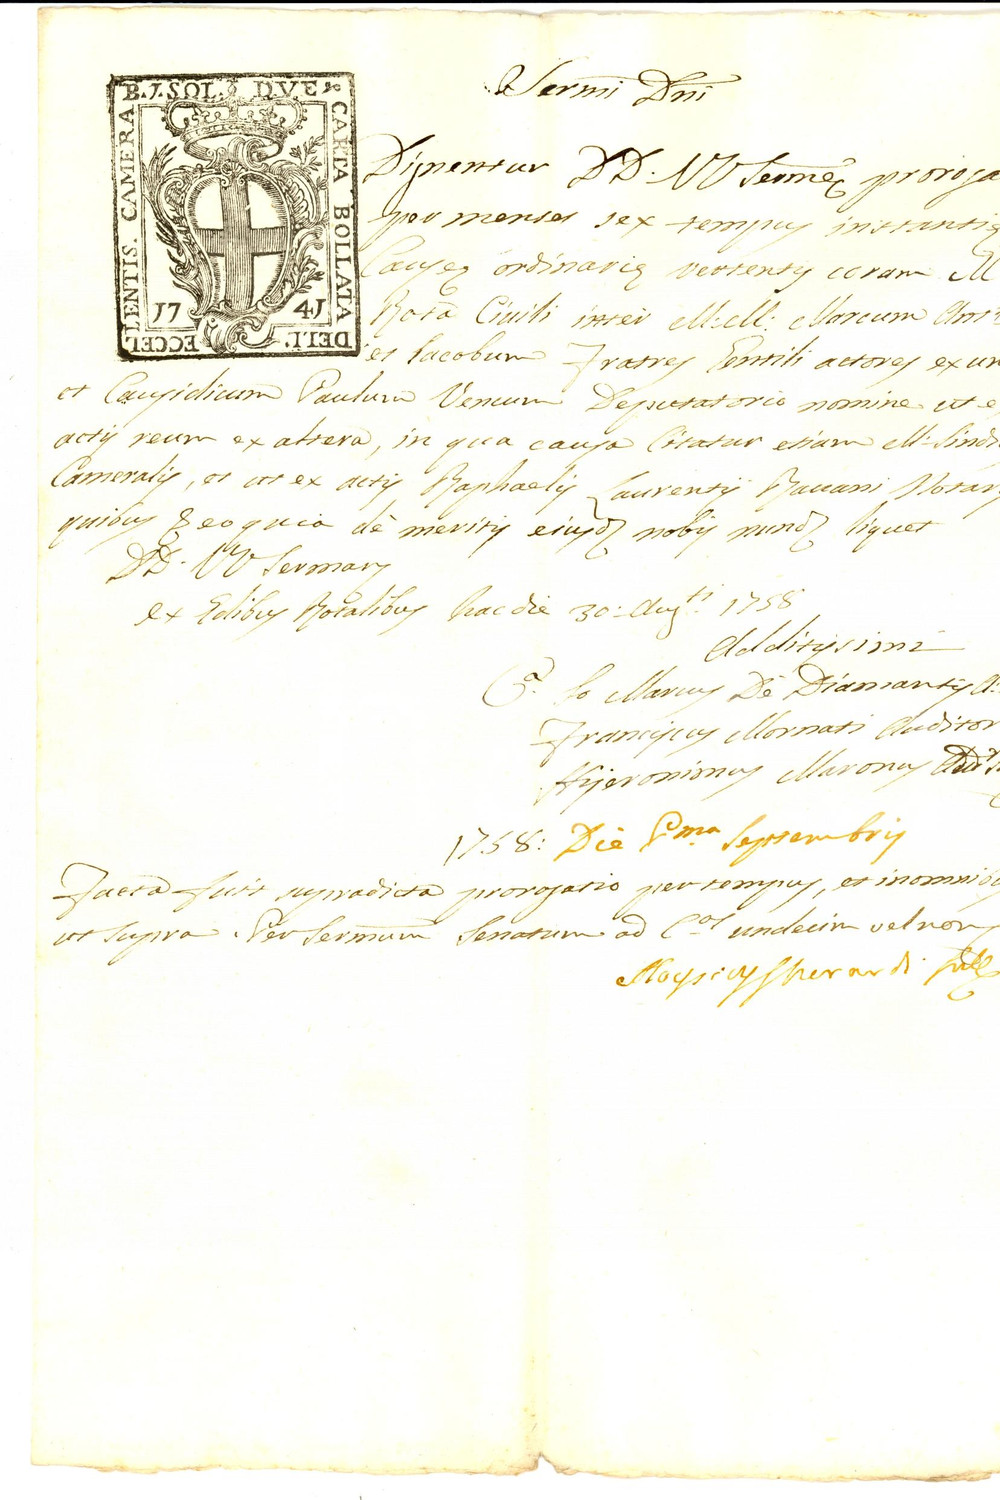 CARTA BOLLATA DELL'ECCELLENTIS. CAMERA B. 7. SOL. DVE
17 41
Sermi Dni
Dignentur DD. VV Serme proroga
per menses sex tempus instantie
Cause ordinarie vertentis coram M
Rota Civili inter M: M: Marcum Ant
et Iacobum Fratres Gentili actores ex un
et Causidicum Paulum Venum Deputatorio nomine ut e
actis reum ex altera, in qua causa Citatur etiam M. Sindi
Cameralis, et ut ex actis Raphaelis Laurentij Ravani Notar
quibus et eo quia de meritis eiusd nobis nund liquet
DD. VV Sermarum
ex Edibus Rotalibus hac die 30: Augti 1758
Additissimi
Io Marcus De Diamantis A
Franciscus Mornati Auditor
Hyeronimus Maronus Audr
1758: Die Pma Septembris
Facta fuit supradicta prorogatio per tempus, et in omnibus
ut supra Per Sermum Senatum ad Clos undecim vel non
Aloysius Gherardi